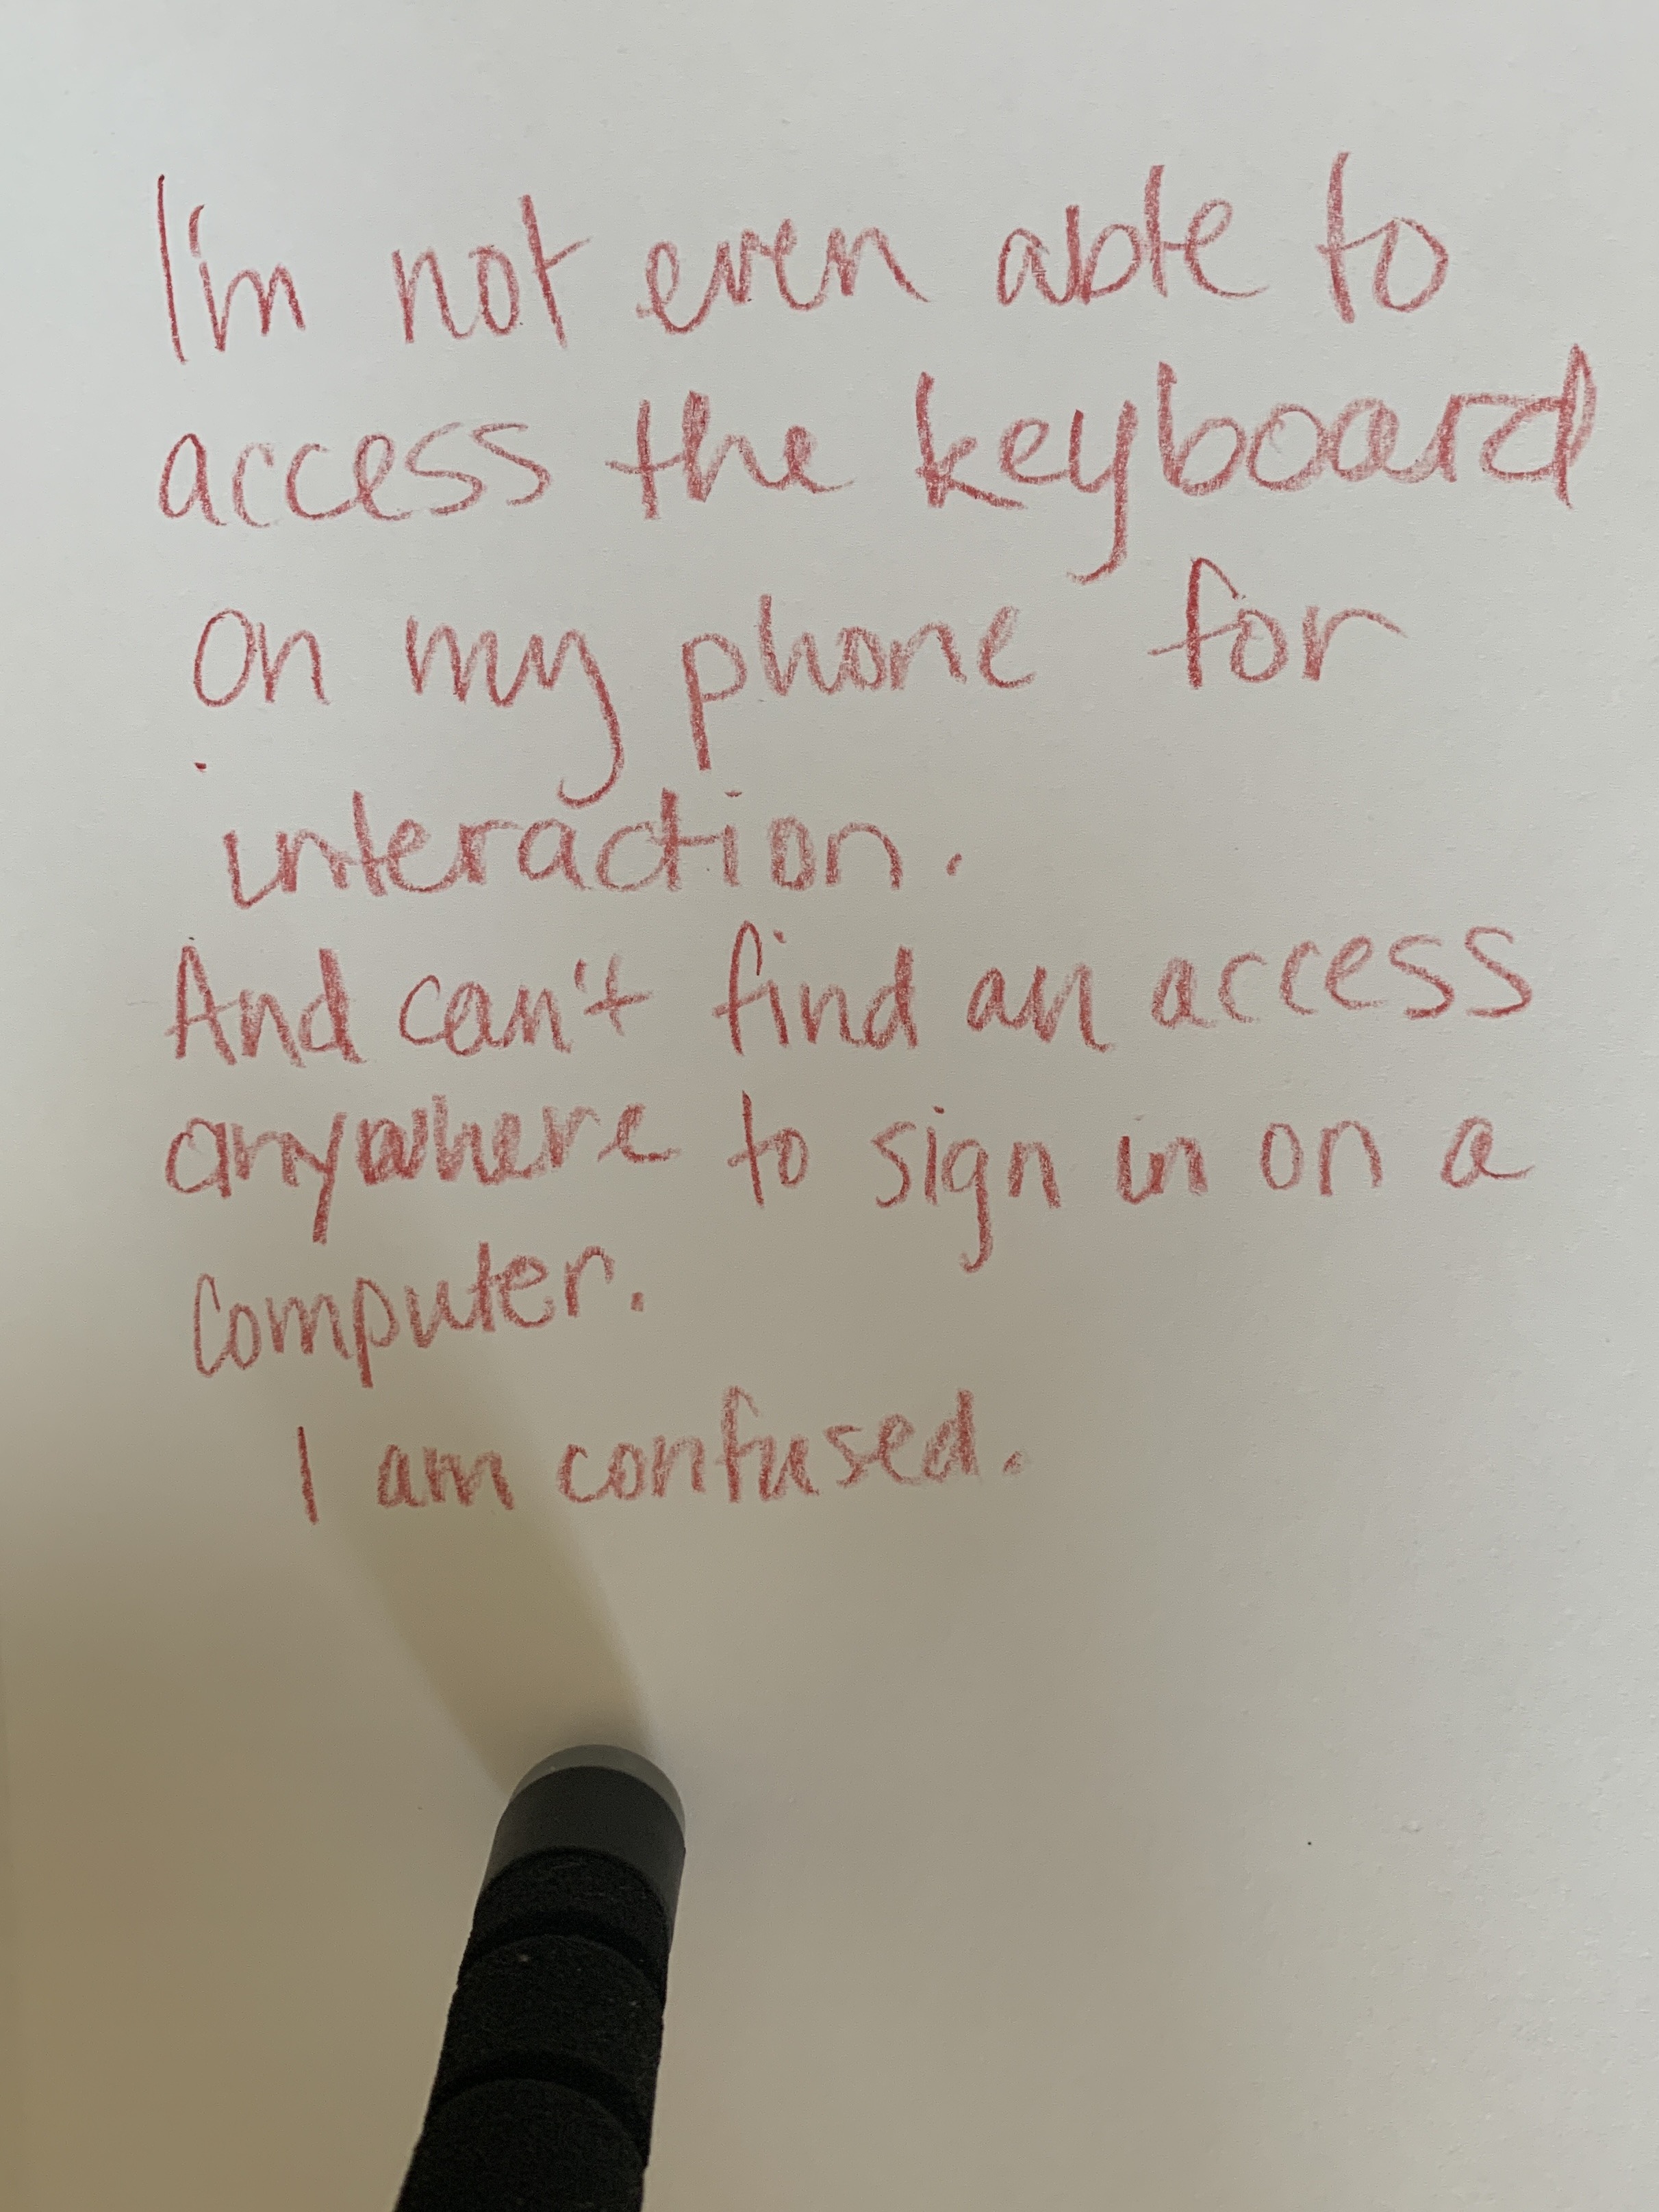 I'm not even able to
access the keyboard
on my phone for
interaction.
And can't find an access
anywhere to sign in on a
computer.
I am confused.